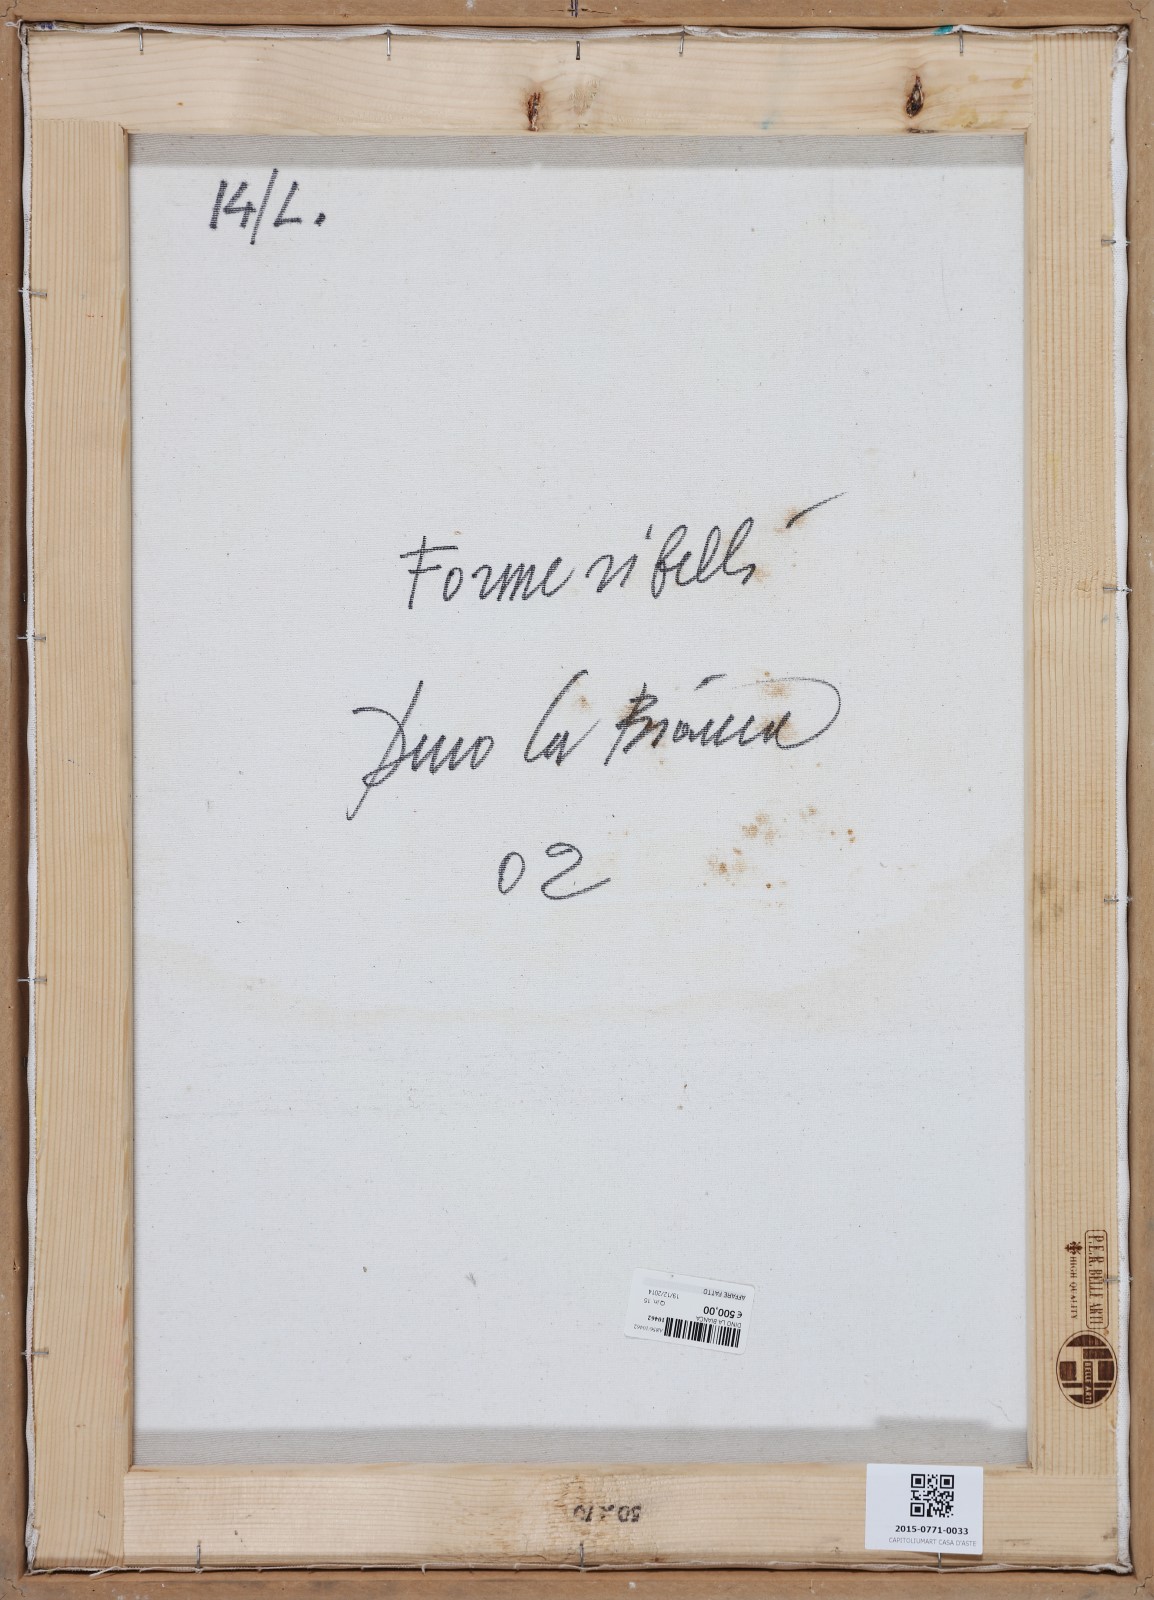 14/L.
Forme ribelli
Dino La Bianca
02
DINO LA BIANCA
€ 500,00
10462
Q.in. 10
19/12/2014
AFFARE FATTO
P.E.R. BELLE ARTI
HIGH QUALITY
50x70
2015-0771-0033
CAPITOLIUMART CASA D'ASTE